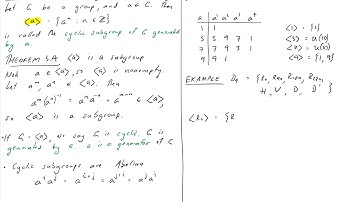 Let G be a group, and a ∈ G. Then
⟨a⟩ = {aⁿ : n ∈ Z}
is called the cyclic subgroup of G generated
by a.
THEOREM 3.4 ⟨a⟩ is a subgroup
Note a ∈ ⟨a⟩, so ⟨a⟩ is nonempty.
Let aᵐ, aⁿ ∈ ⟨a⟩. Then
aᵐ(aⁿ)⁻¹ = aᵐa⁻ⁿ = aᵐ⁻ⁿ ∈ ⟨a⟩,
so ⟨a⟩ is a subgroup.
• If G = ⟨a⟩, we say G is cyclic. G is
generated by a. a is a generator of G
• Cyclic subgroups are Abelian
aⁱaʲ = aⁱ⁺ʲ = aʲ⁺ⁱ = aʲaⁱ
a a² a³ a⁴
1 1
3 9 7 1
7 9 3 1
9 1
⟨1⟩ = {1}
⟨3⟩ = U(10)
⟨7⟩ = U(10)
⟨9⟩ = {1, 9}
EXAMPLE D₄ = {R₀, R₉₀, R₁₈₀, R₂₇₀,
H, V, D, D'}
⟨R₀⟩ = {R